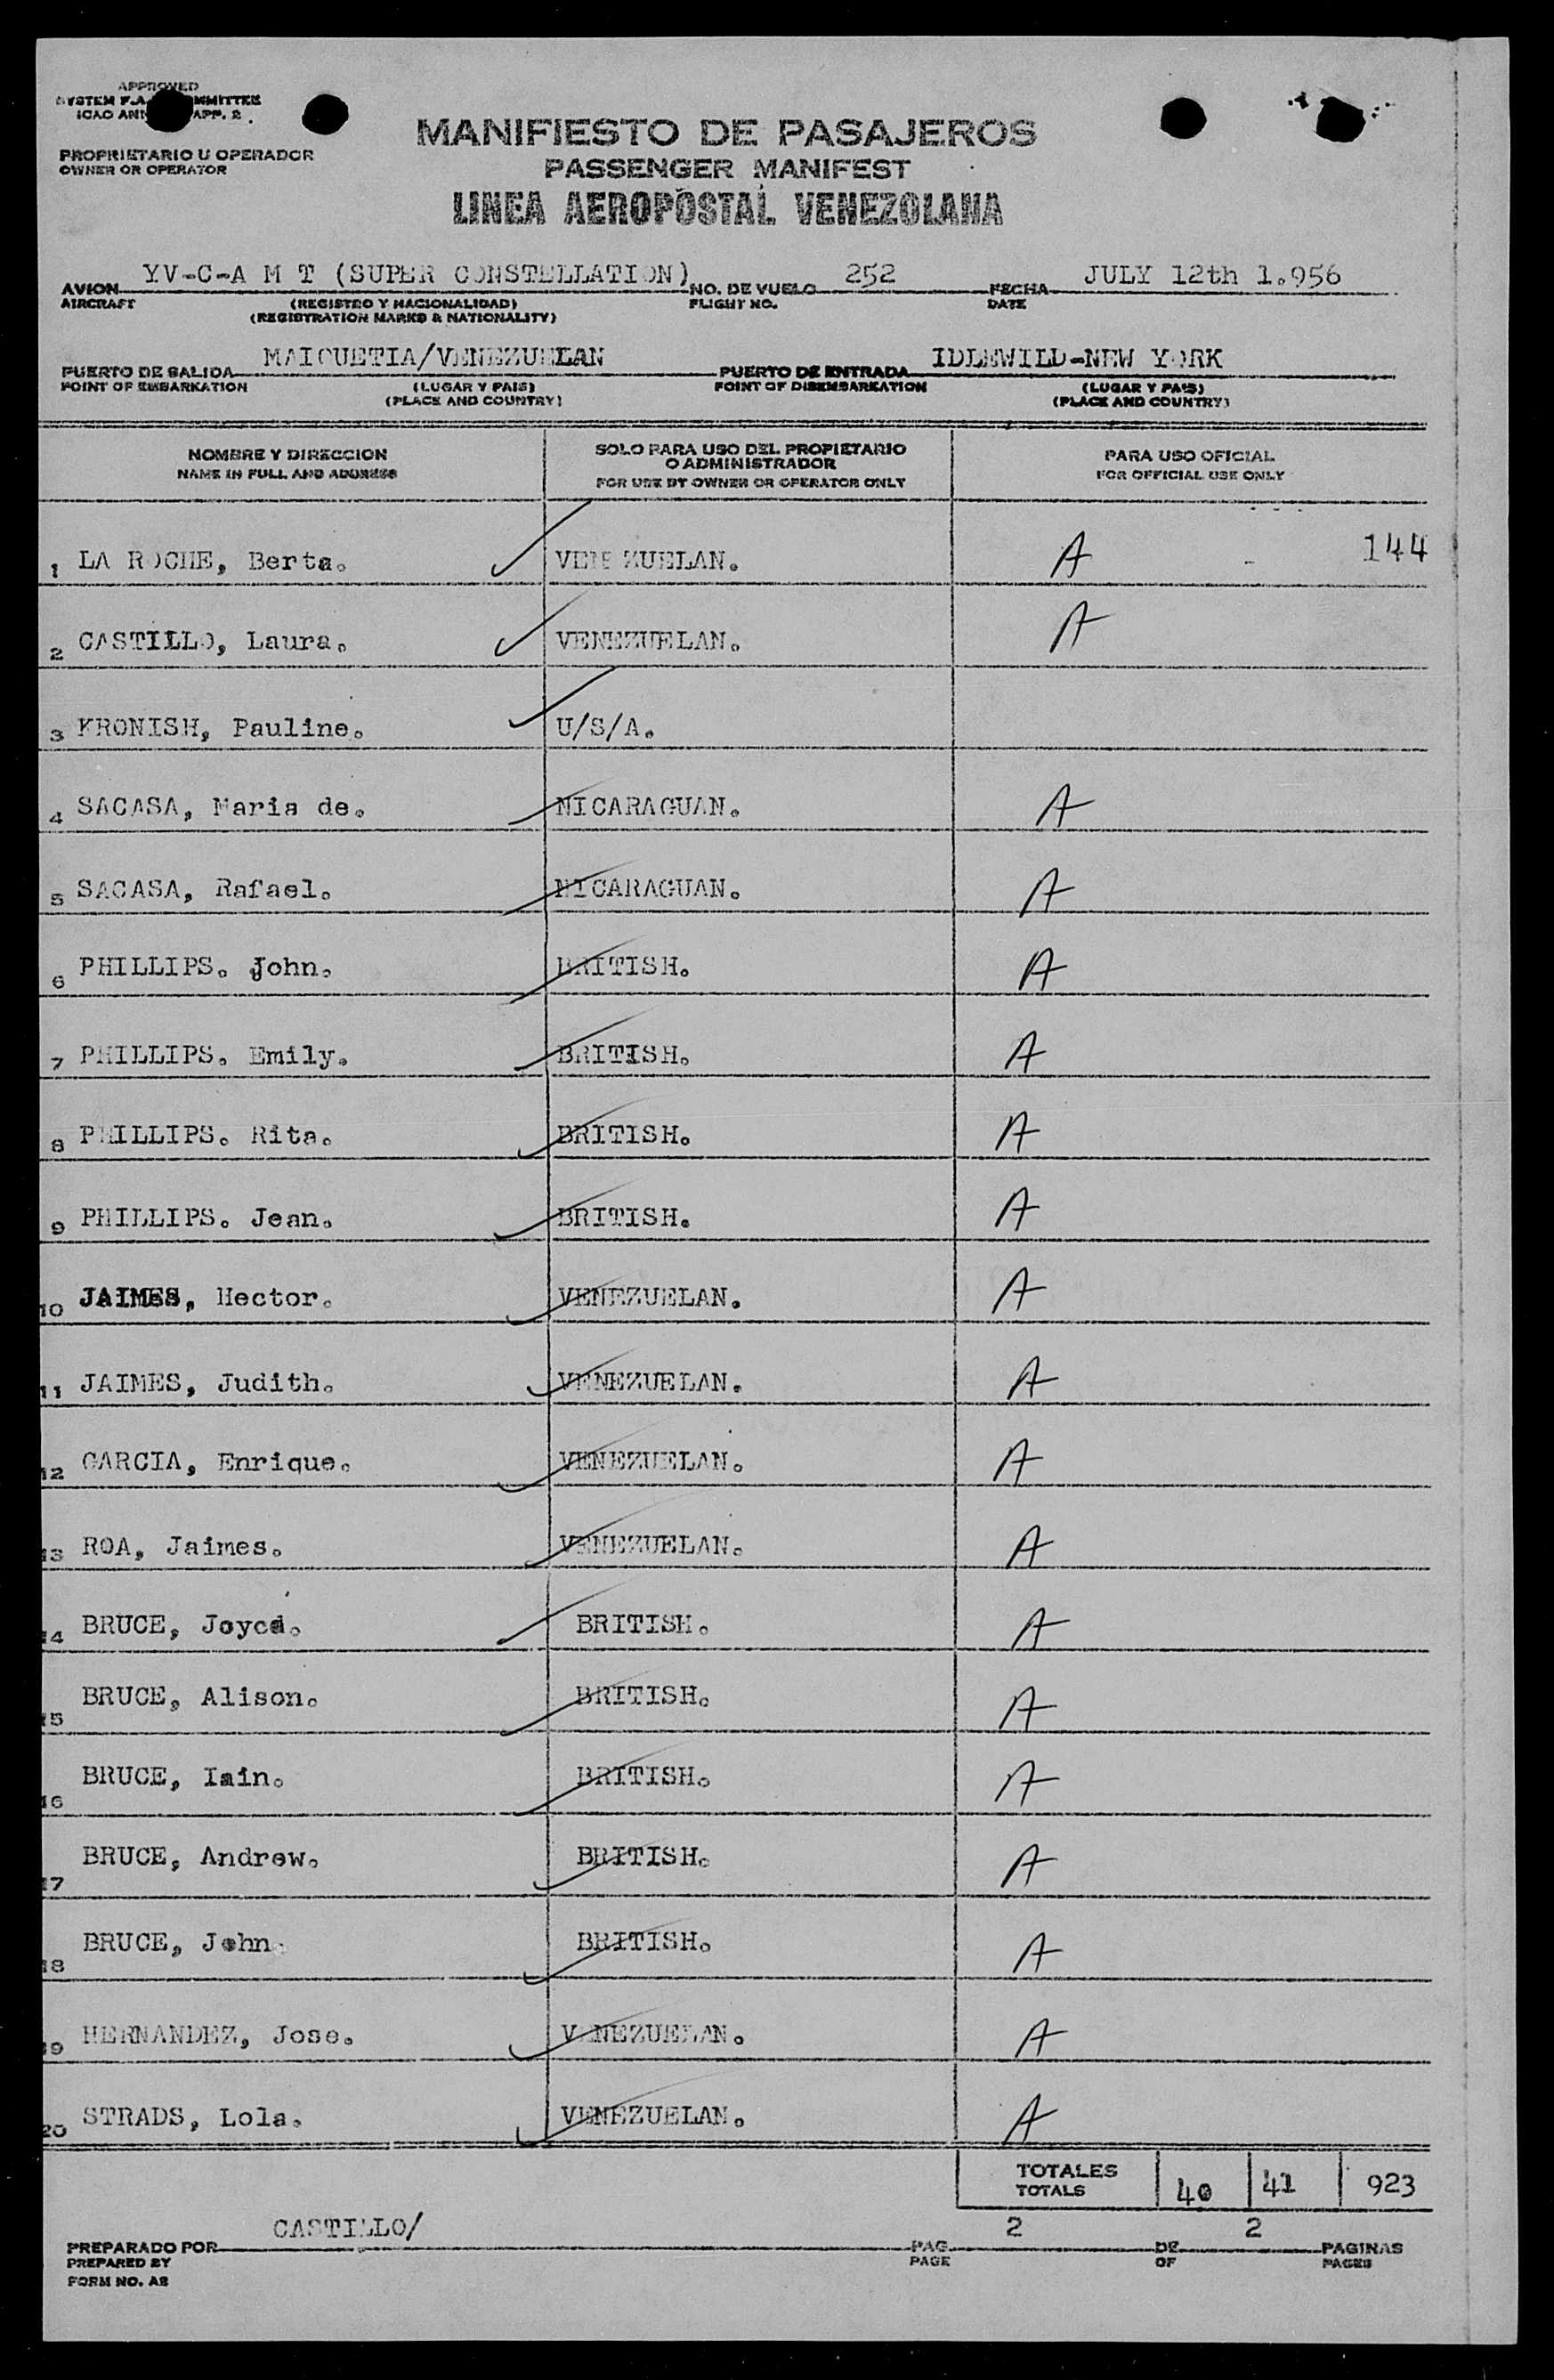 APPROVED
SYSTEM F.A. COMMITTEE
ICAO ANN APP. 2
PROPRIETARIO U OPERADOR
OWNER OR OPERATOR
MANIFIESTO DE PASAJEROS
PASSENGER MANIFEST
LINEA AEROPOSTAL VENEZOLANA
AVION YV-C-A M T (SUPER CONSTELLATION) NO. DE VUELO 252 FECHA JULY 12th 1.956
AIRCRAFT (REGISTRO Y NACIONALIDAD) FLIGHT NO. DATE
(REGISTRATION MARKS & NATIONALITY)
PUERTO DE SALIDA MAIQUETIA/VENEZUELAN PUERTO DE ENTRADA IDLEWILD-NEW YORK
POINT OF EMBARKATION (LUGAR Y PAIS) POINT OF DISEMBARKATION (LUGAR Y PAIS)
(PLACE AND COUNTRY) (PLACE AND COUNTRY)
NOMBRE Y DIRECCION
NAME IN FULL AND ADDRESS
SOLO PARA USO DEL PROPIETARIO
O ADMINISTRADOR
FOR USE BY OWNER OR OPERATOR ONLY
PARA USO OFICIAL
FOR OFFICIAL USE ONLY
1 LA ROCHE, Berta. VENEZUELAN. A 144
2 CASTILLO, Laura. VENEZUELAN. A
3 KRONISH, Pauline. U/S/A.
4 SACASA, Maria de. NICARAGUAN. A
5 SACASA, Rafael. NICARAGUAN. A
6 PHILLIPS. John. BRITISH. A
7 PHILLIPS. Emily. BRITISH. A
8 PHILLIPS. Rita. BRITISH. A
9 PHILLIPS. Jean. BRITISH. A
10 JAIMES, Hector. VENEZUELAN. A
11 JAIMES, Judith. VENEZUELAN. A
12 GARCIA, Enrique. VENEZUELAN. A
13 ROA, Jaimes. VENEZUELAN. A
14 BRUCE, Joyce. BRITISH. A
15 BRUCE, Alison. BRITISH. A
16 BRUCE, Iain. BRITISH. A
17 BRUCE, Andrew. BRITISH. A
18 BRUCE, John. BRITISH. A
19 HERNANDEZ, Jose. VENEZUELAN. A
20 STRADS, Lola. VENEZUELAN. A
TOTALES
TOTALS 40 41 923
PREPARADO POR CASTILLO/ PAG. 2 DE 2 PAGINAS
PREPARED BY PAGE OF PAGES
FORM NO. A2